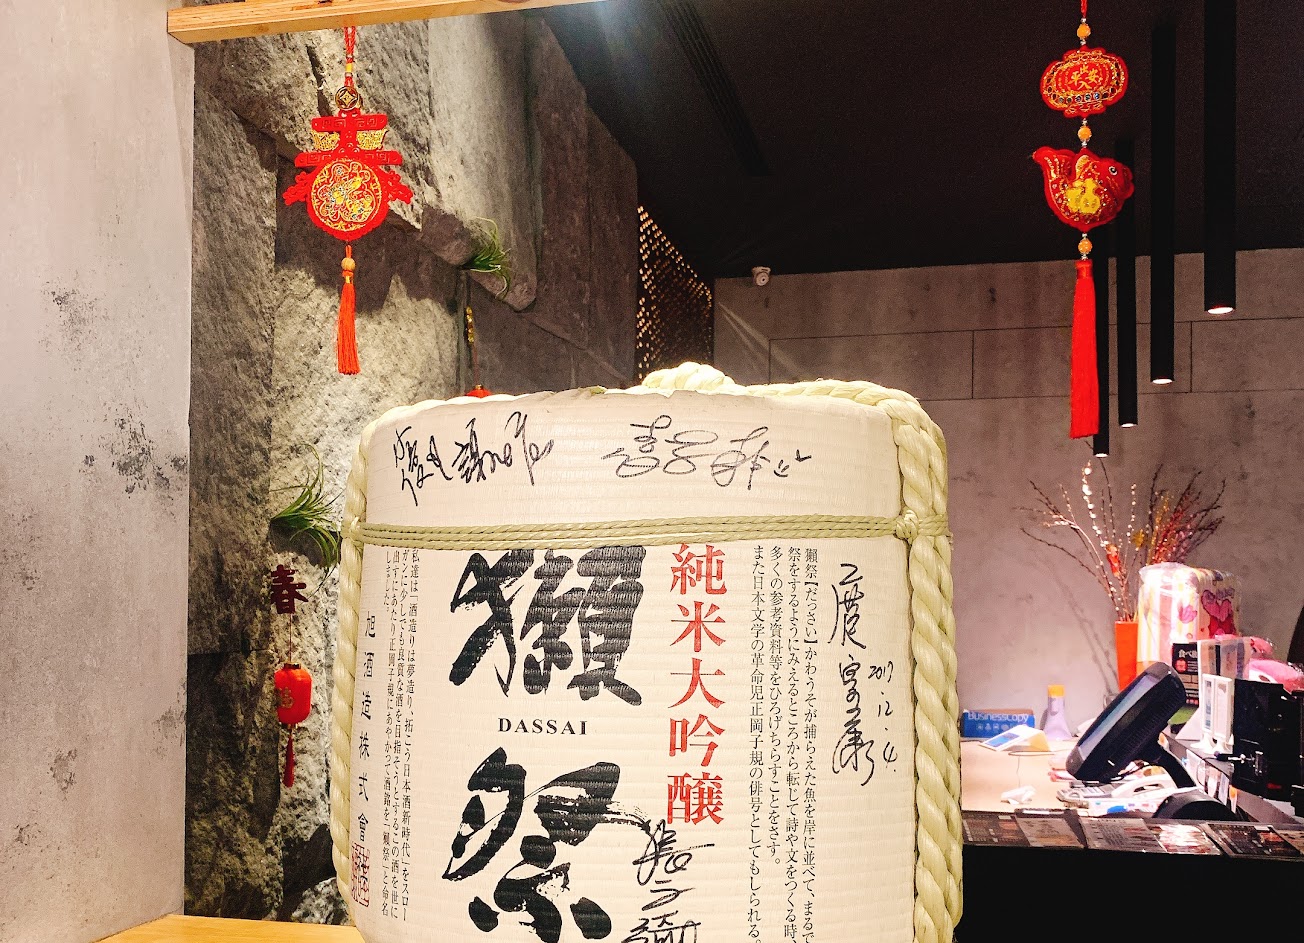 春
平安
福
春
純米大吟醸
獺祭
DASSAI
獺祭【だっさい】かわうそが捕らえた魚を岸に並べて、まるで
祭をするようにみえるところから転じて詩や文をつくる時、
多くの参考資料等をひろげちらすことをさす。
また日本文学の革命児正岡子規の俳号としてもしられる。
私達は「酒造りは夢造り、拓こう日本酒新時代」をスロー
ガンに少しでも良質な酒を目指そうとするこの酒を世に
出すにあたり正岡子規にあやかって酒銘を「獺祭」と命名
しました。
旭酒造株式會
2017.12.4.
businesscopy